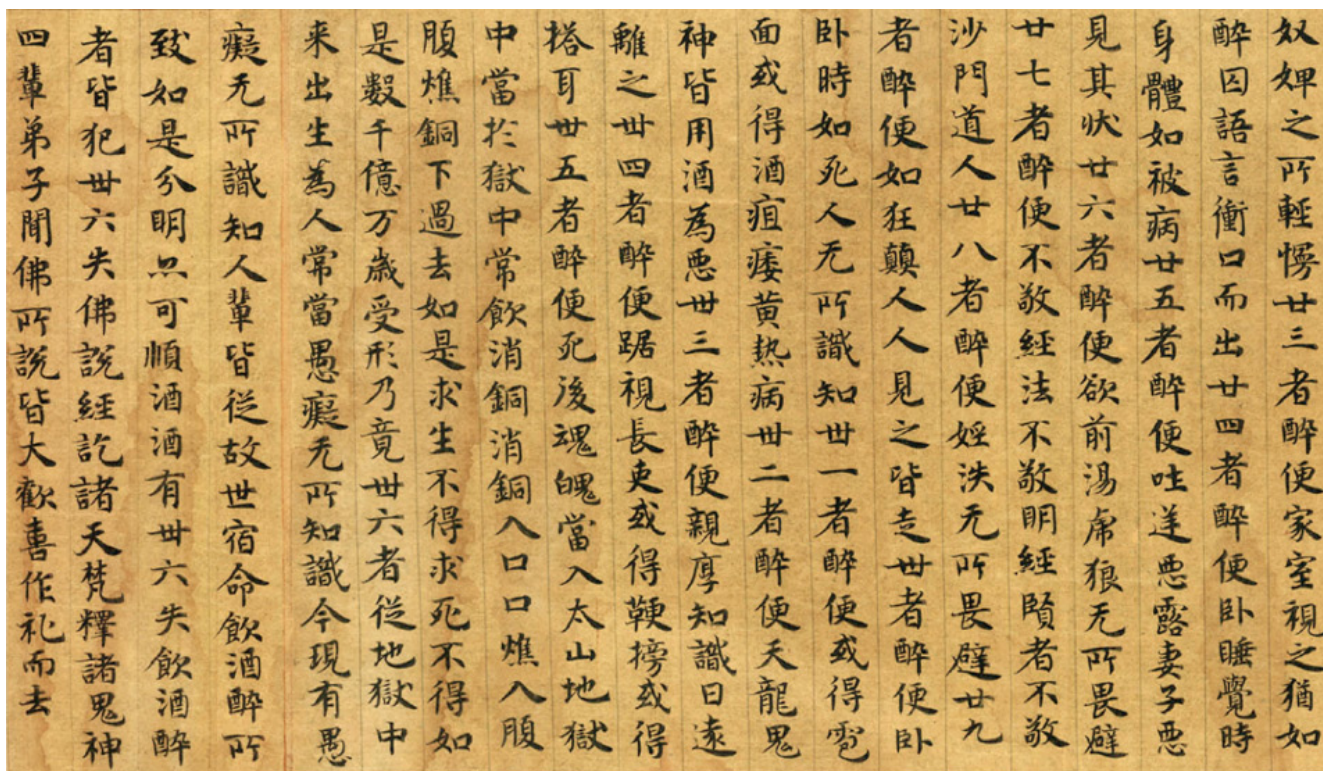 奴婢之所輕慢廿三者醉便家室視之猶如
醉囚語言衝口而出廿四者醉便卧睡覺時
身體如被病廿五者醉便吐逆惡露妻子惡
見其狀廿六者醉便欲前湯虎狼无所畏避
廿七者醉便不敬經法不敬明經賢者不敬
沙門道人廿八者醉便婬泆无所畏避廿九
者醉便如狂顛人人見之皆走卅者醉便卧
卧時如死人无所識知卅一者醉便或得皰
面或得酒疸痿黄热病卅二者醉便天龍鬼
神皆用酒為惡卅三者醉便親厚知識日遠
離之卅四者醉便踞視長吏或得鞕搒或得
搭耳卅五者醉便死後魂魄當入太山地獄
中當於獄中常飲消銅消銅入口口燋入腹
腹燋銅下過去如是求生不得求死不得如
是數千億万歲受形乃竟卅六者從地獄中
来出生為人常當愚癡无所知識今現有愚
癡无所識知人輩皆從故世宿命飲酒醉所
致如是分明亦可順酒酒有卅六失飲酒醉
者皆犯卅六失佛說經訖諸天梵釋諸鬼神
四輩弟子聞佛所說皆大歡喜作礼而去